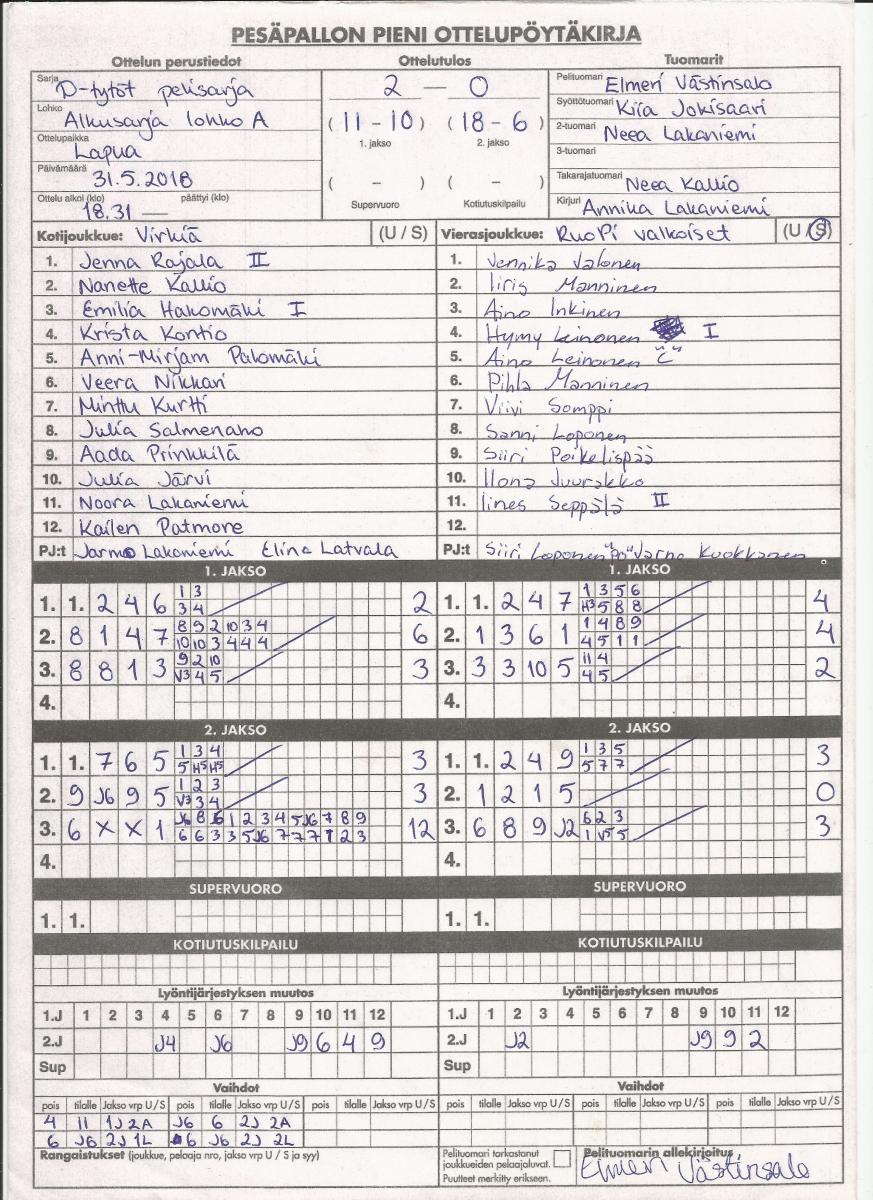 PESÄPALLON PIENI OTTELUPÖYTÄKIRJA
Ottelun perustiedot Ottelutulos Tuomarit
Sarja D-tytöt pelisarja
Lohko Alkusarja lohko A
Ottelupaikka Lapua
Päivämäärä 31.5.2018
Ottelu alkoi (klo) 18.31 — päättyi (klo)
2 — 0
(11 - 10) (18 - 6)
1. jakso 2. jakso
( - ) ( - )
Supervuoro Kotiutuskilpailu
Pelituomari Elmeri Västinsalo
Syöttötuomari Kiia Jokisaari
2-tuomari Neea Lakaniemi
3-tuomari
Takarajatuomari Neea Kallio
Kirjuri Annika Lakaniemi
Kotijoukkue: Virkiä (U / S) Vierasjoukkue: RuoPi valkoiset (U / S)
1. Jenna Rajala II 1. Vennika Jalonen
2. Nanette Kallio 2. Iiris Manninen
3. Emilia Hakomäki I 3. Aino Inkinen
4. Krista Kontio 4. Hymy Leinonen I
5. Anni-Mirjam Palomäki 5. Aino Leinonen "C"
6. Veera Nikkari 6. Pihla Manninen
7. Minttu Kurtti 7. Viivi Somppi
8. Julia Salmenaho 8. Sanni Loponen
9. Aada Prinkkilä 9. Siiri Poikelispää
10. Julia Järvi 10. Ilona Juurakko
11. Noora Lakaniemi 11. Iines Seppälä II
12. Kailen Patmore 12.
PJ:t Jarmo Lakaniemi Elina Latvala PJ:t Siiri Loponen "PJ" Jarno Kuokkanen
1. JAKSO 1. JAKSO
1 3 1 3 5 6
1. 1. 2 4 6 2 1. 1. 2 4 7 4
3 4 H3 5 8 8
8 9 2 10 3 4 1 4 8 9
2. 8 1 4 7 6 2. 1 3 6 1 4
10 10 3 4 4 4 4 5 1 1
9 2 10 11 4
3. 8 8 1 3 3 3. 3 3 10 5 2
V3 4 5 4 5
4. 4.
2. JAKSO 2. JAKSO
1 3 4 1 3 5
1. 1. 7 6 5 3 1. 1. 2 4 9 3
5 H5 H5 5 7 7
1 2 3
2. 9 J6 9 5 3 2. 1 2 1 5 0
V3 3 4
J6 8 6 1 2 3 4 5 J6 7 8 9 6 2 3
3. 6 X X 1 12 3. 6 8 9 J2 3
6 6 3 3 5 J6 7 7 7 1 2 3 1 V5 5
4. 4.
SUPERVUORO SUPERVUORO
1. 1. 1. 1.
KOTIUTUSKILPAILU KOTIUTUSKILPAILU
Lyöntijärjestyksen muutos Lyöntijärjestyksen muutos
1.J 1 2 3 4 5 6 7 8 9 10 11 12 1.J 1 2 3 4 5 6 7 8 9 10 11 12
2.J J4 J6 J9 6 4 9 2.J J2 J9 9 2
Sup Sup
Vaihdot Vaihdot
pois tilalle Jakso vrp U/S pois tilalle Jakso vrp U/S pois tilalle Jakso vrp U/S pois tilalle Jakso vrp U/S pois tilalle Jakso vrp U/S pois tilalle Jakso vrp U/S
4 11 1J 2A J6 6 2J 2A
6 J6 2J 1L 6 J6 2J 2L
Rangaistukset (joukkue, pelaaja nro, jakso vrp U / S ja syy)
Pelituomari tarkastanut
joukkueiden pelaajaluvat.
Puutteet merkitty erikseen.
Pelituomarin allekirjoitus
Elmeri Västinsalo